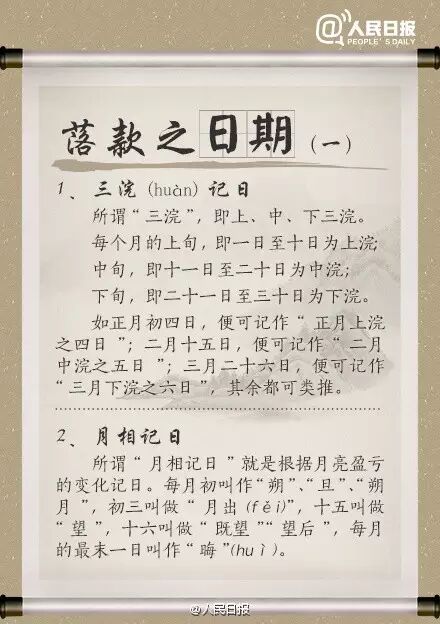 @人民日报
PEOPLE'S DAILY
落款之日期（一）
1、三浣(huàn)记日
所谓“三浣”，即上、中、下三浣。
每个月的上旬，即一日至十日为上浣;
中旬，即十一日至二十日为中浣;
下旬，即二十一日至三十日为下浣。
如正月初四日，便可记作“正月上浣
之四日”；二月十五日，便可记作“二月
中浣之五日”；三月二十六日，便可记作
“三月下浣之六日”，其余都可类推。
2、月相记日
所谓“月相记日”就是根据月亮盈亏
的变化记日。每月初叫作“朔”、“旦”、“朔
月”，初三叫做“月出(fěi)”，十五叫做
“望”，十六叫做“既望”“望后”，每月
的最末一日叫作“晦”(huì)。
@人民日报